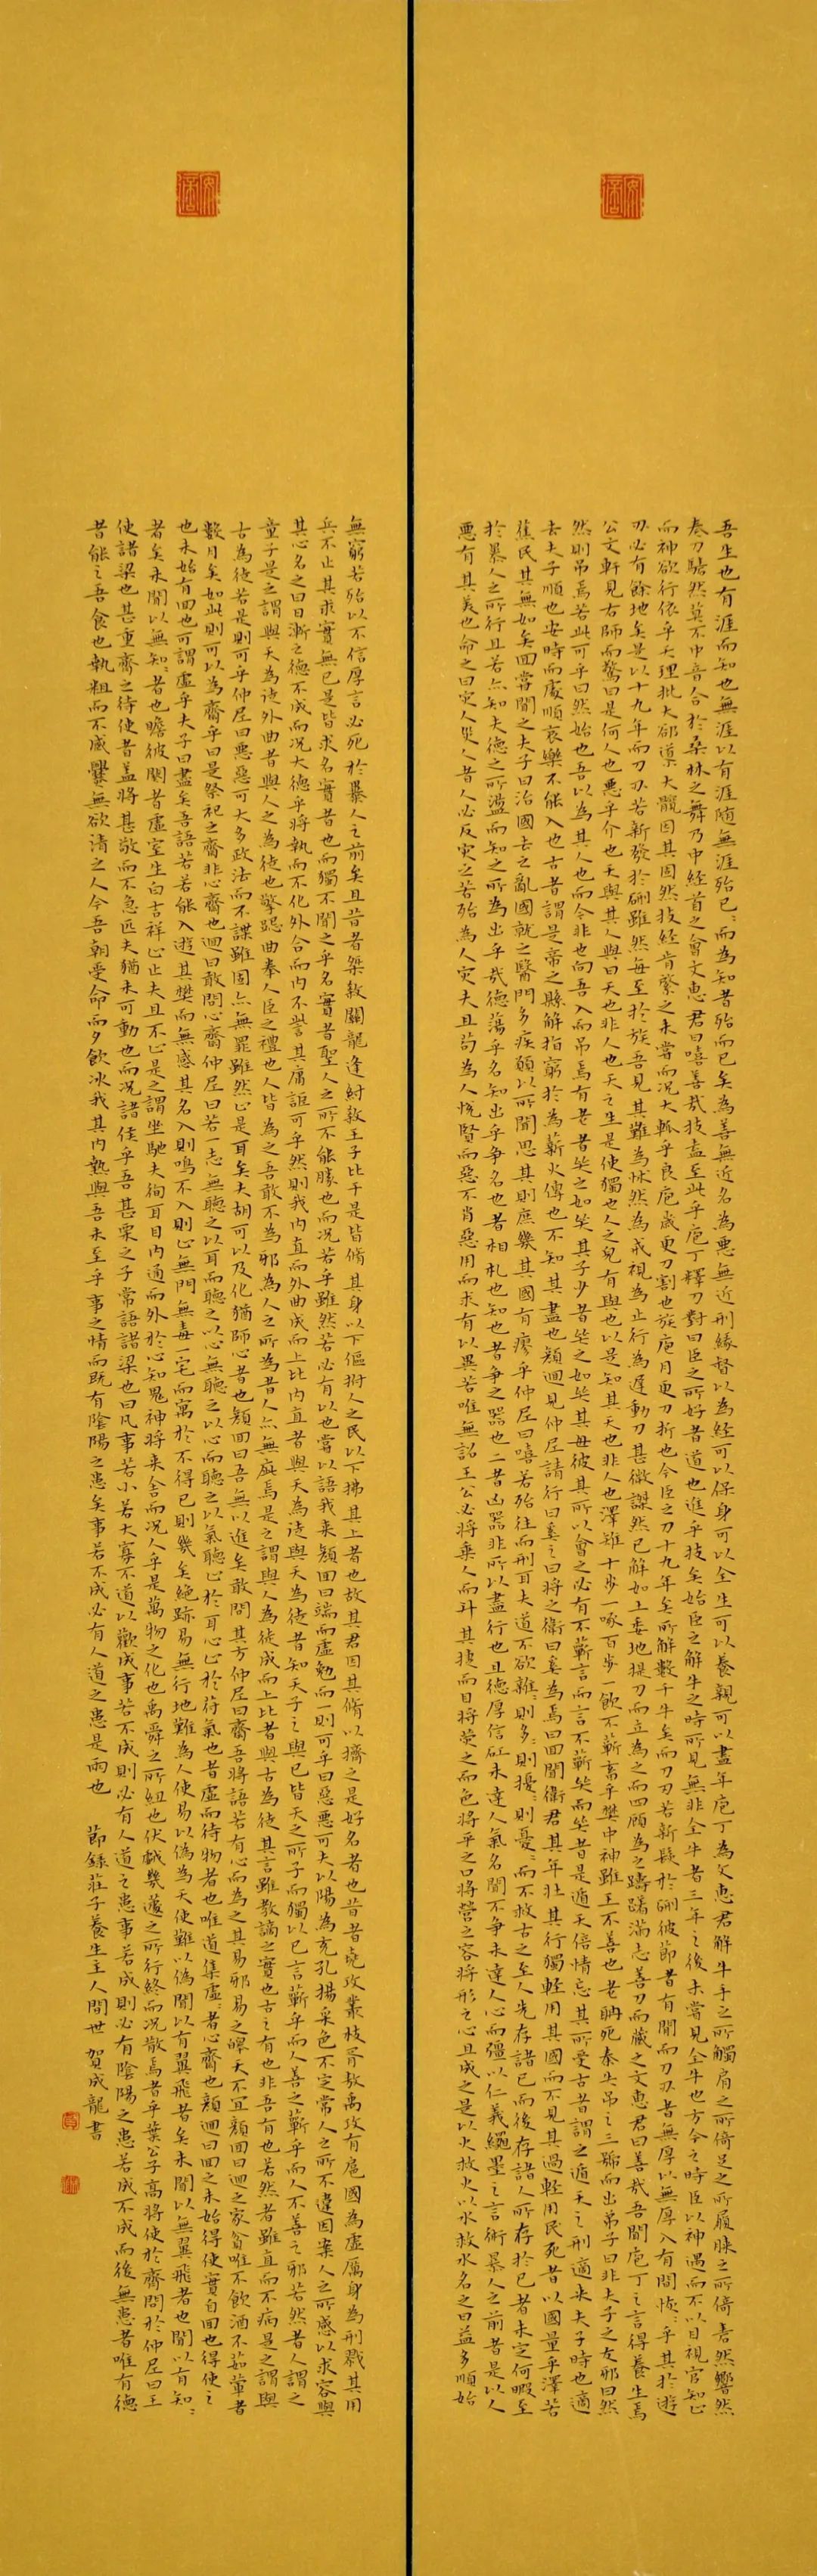 吾生也有涯而知也無涯以有涯随無涯殆已〻而為知者殆而已矣為善無近名為惡無近刑緣督以為經可以保身可以全生可以養親可以盡年庖丁為文惠君解牛手之所觸肩之所倚足之所履膝之所倚砉然響然
奏刀騞然莫不中音合於桑林之舞乃中經首之會文惠君曰嘻善哉技盍至此乎庖丁釋刀對曰臣之所好者道也進乎技矣始臣之解牛之時所見無非全牛者三年之後未嘗見全牛也方今之時臣以神遇而不以目視官知止
而神欲行依乎天理批大郤導大髖因其固然技經肯綮之未嘗而况大軱乎良庖歲更刀割也族庖月更刀折也今臣之刀十九年矣所解數千牛矣而刀刃若新發於硎彼節者有間而刀刃者無厚以無厚入有間恢〻乎其於遊
刃必有餘地矣是以十九年而刀刃若新發於硎雖然每至於族吾見其難為怵然為戒視為止行為遲動刀甚微謋然已解如土委地提刀而立為之而四顧為之躊躇滿志善刀而藏之文惠君曰善哉吾聞庖丁之言得養生焉
公文軒見右師而驚曰是何人也惡乎介也天與其人與曰天也非人也天之生是使獨也人之皃有與也以是知其天也非人也澤雉十步一啄百步一飲不蘄畜乎樊中神雖王不善也老聃死秦失吊之三號而出弟子曰非夫子之友邪曰然
然則吊焉若此可乎曰然始也吾以為其人也而今非也向吾入而吊焉有老者哭之如哭其子少者哭之如哭其母彼其所以會之必有不蘄言而言不蘄哭而哭者是遁天倍情忘其所受古者謂之遁天之刑適来夫子時也適
去夫子順也安時而處順哀樂不能入也古者謂是帝之縣解指窮於為薪火傳也不知其盡也顏迴見仲尼請行曰奚之曰將之衛曰奚為焉曰回聞衛君其年壮其行獨輕用其國而不見其過輕用民死者以國量乎澤若
蕉民其無如矣回嘗聞之夫子曰治國去之亂國就之醫門多疾願以所聞思其則庶幾其國有瘳乎仲尼曰嘻若殆往而刑耳夫道不欲雜〻則多〻則擾〻則憂〻而不救古之至人先存諸已而後存諸人所存於已者未定何暇至
於暴人之所行且若亦知夫德之所蕩而知之所為出乎哉德蕩乎名知出乎爭名也者相札也知也者爭之器也二者凶器非所以盡行也且德厚信矼未達人氣名聞不爭未達人心而彊以仁義繩墨之言術暴人之前者是以人
惡有其美也命之曰灾人灾人者人必反灾之若殆為人灾夫且苟為人悅賢而惡不肖惡用而求有以異若唯無詔王公必將乘人而鬥其捷而目將熒之而色將平之口將營之容將形之心且成之是以火救火以水救水名之曰益多順始
無窮若殆以不信厚言必死於暴人之前矣且昔者桀殺關龍逢紂殺王子比干是皆脩其身以下傴拊人之民以下拂其上者也故其君因其脩以擠之是好名者也昔者堯攻叢枝胥敖禹攻有扈國為虛厲身為刑戮其用
兵不止其求實無已是皆求名實者也而獨不聞之乎名實者聖人之所不能勝也而况若乎雖然若必有以也嘗以語我来顏回曰端而虛勉而一則可乎曰惡惡可夫以陽為充孔揚采色不定常人之所不違因案人之所感以求容與
其心名之曰日漸之德不成而况大德乎將執而不化外合而内不訾其庸詎可乎然則我内直而外曲成而上比内直者與天為徒與天為徒者知天子之與已皆天之所子而獨以已言蘄乎而人善之蘄乎而人不善之邪若然者人謂之
童子是之謂與天為徒外曲者與人之為徒也擎跽曲拳人臣之禮也人皆為之吾敢不為邪為人之所為者人亦無疵焉是之謂與人為徒成而上比者與古為徒其言雖教謫之實也古之有也非吾有也若然者雖直而不病是之謂與
古為徒若是則可乎仲尼曰惡惡可大多政法而不諜雖固亦無罪雖然止是耳矣夫胡可以及化猶師心者也顏回曰吾無以進矣敢問其方仲尼曰齋吾將語若有心而為之其易邪易之皞天不宜顏回曰迴之家貧唯不飲酒不茹葷者
數月矣如此則可以為齋乎曰是祭祀之齋非心齋也迴曰敢問心齋仲尼曰若一志無聽之以耳而聽之以心無聽之以心而聽之以氣聽止於耳心止於符氣也者虛而待物者也唯道集虛〻者心齋也顏迴曰回之未始得使實自回也得使之
也未始有回也可謂虛乎夫子曰盡矣吾語若若能入遊其樊而無感其名入則鳴不入則止無門無毒一宅而寓於不得已則幾矣絕跡易無行地難為人使易以偽為天使難以偽聞以有翼飛者矣未聞以無翼飛者也聞以有知〻
者矣未聞以無知〻者也瞻彼闋者虛室生白吉祥止止夫且不止是之謂坐馳夫徇耳目内通而外於心知鬼神將来舍而况人乎是萬物之化也禹舜之所紐也伏戲幾蘧之所行終而况散焉者乎葉公子高將使於齋問於仲尼曰王
使諸梁也甚重齋之待使者盖將甚敬而不急匹夫猶未可動也而况諸侯乎吾甚栗之子常語諸梁也曰凡事若小若大寡不道以歡成事若不成則必有人道之患事若成則必有陰陽之患若成不成而後無患者唯有德
者能之吾食也執粗而不臧爨無欲清之人今吾朝受命而夕飲冰我其内熱與吾未至乎事之情而既有陰陽之患矣事若不成必有人道之患是兩也 節錄莊子養生主人間世 賀成龍書